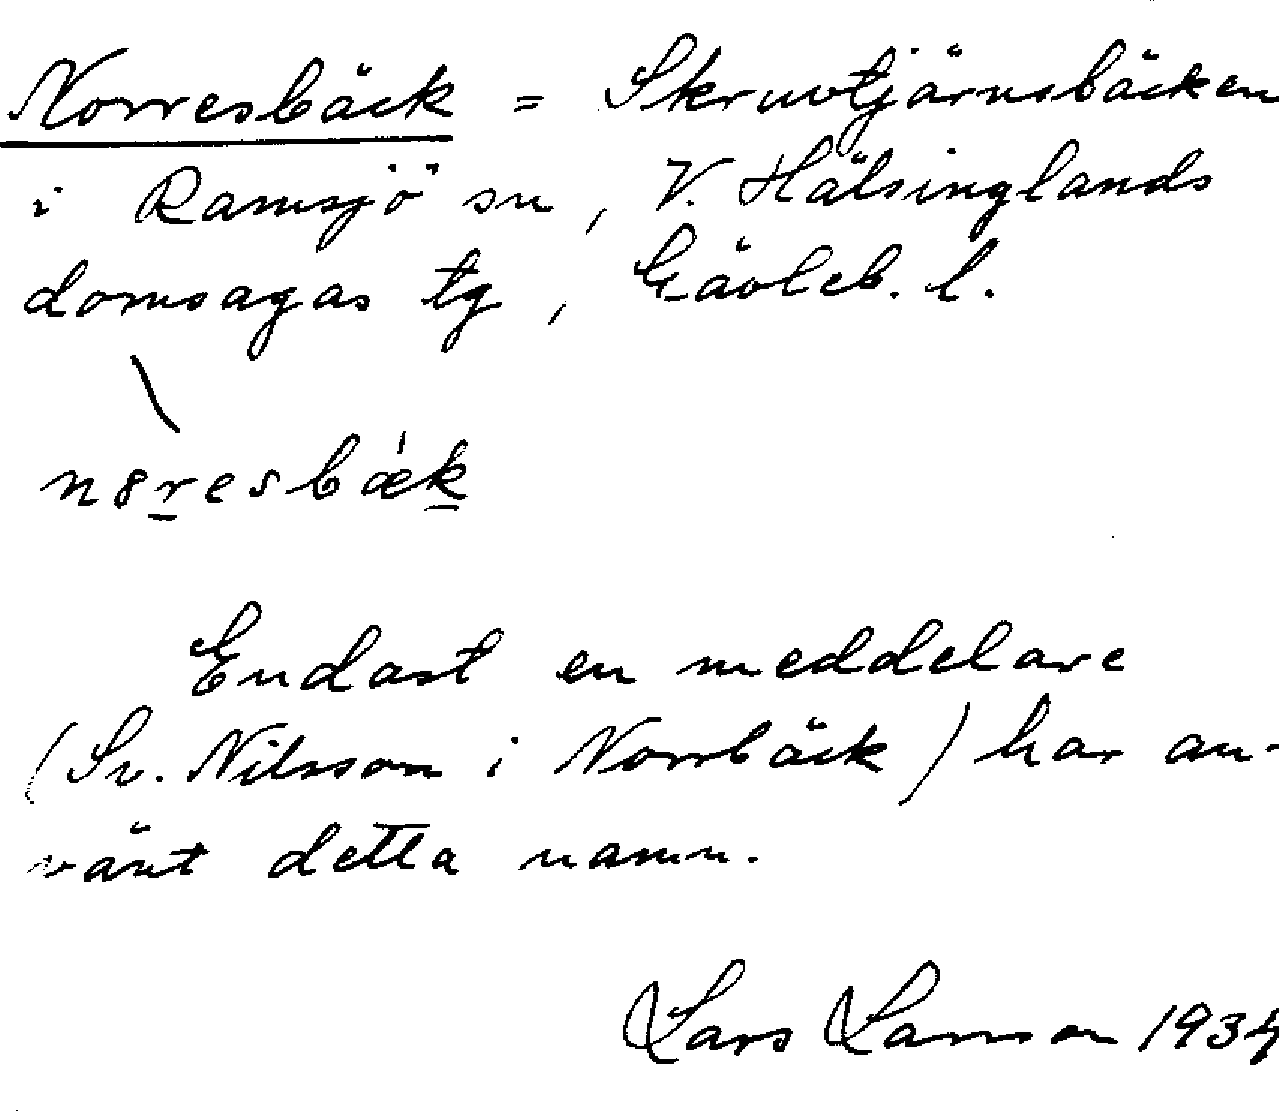 Norresbäck = Skruvtjärnsbäcken
i Ramsjö sn, V. Hälsinglands
domsagas tg, Gävleb. l.
n8resbǽk
Endast en meddelare
(Sv. Nilsson i Norrbäck) har an-
vänt detta namn.
Lars Larsson 1934